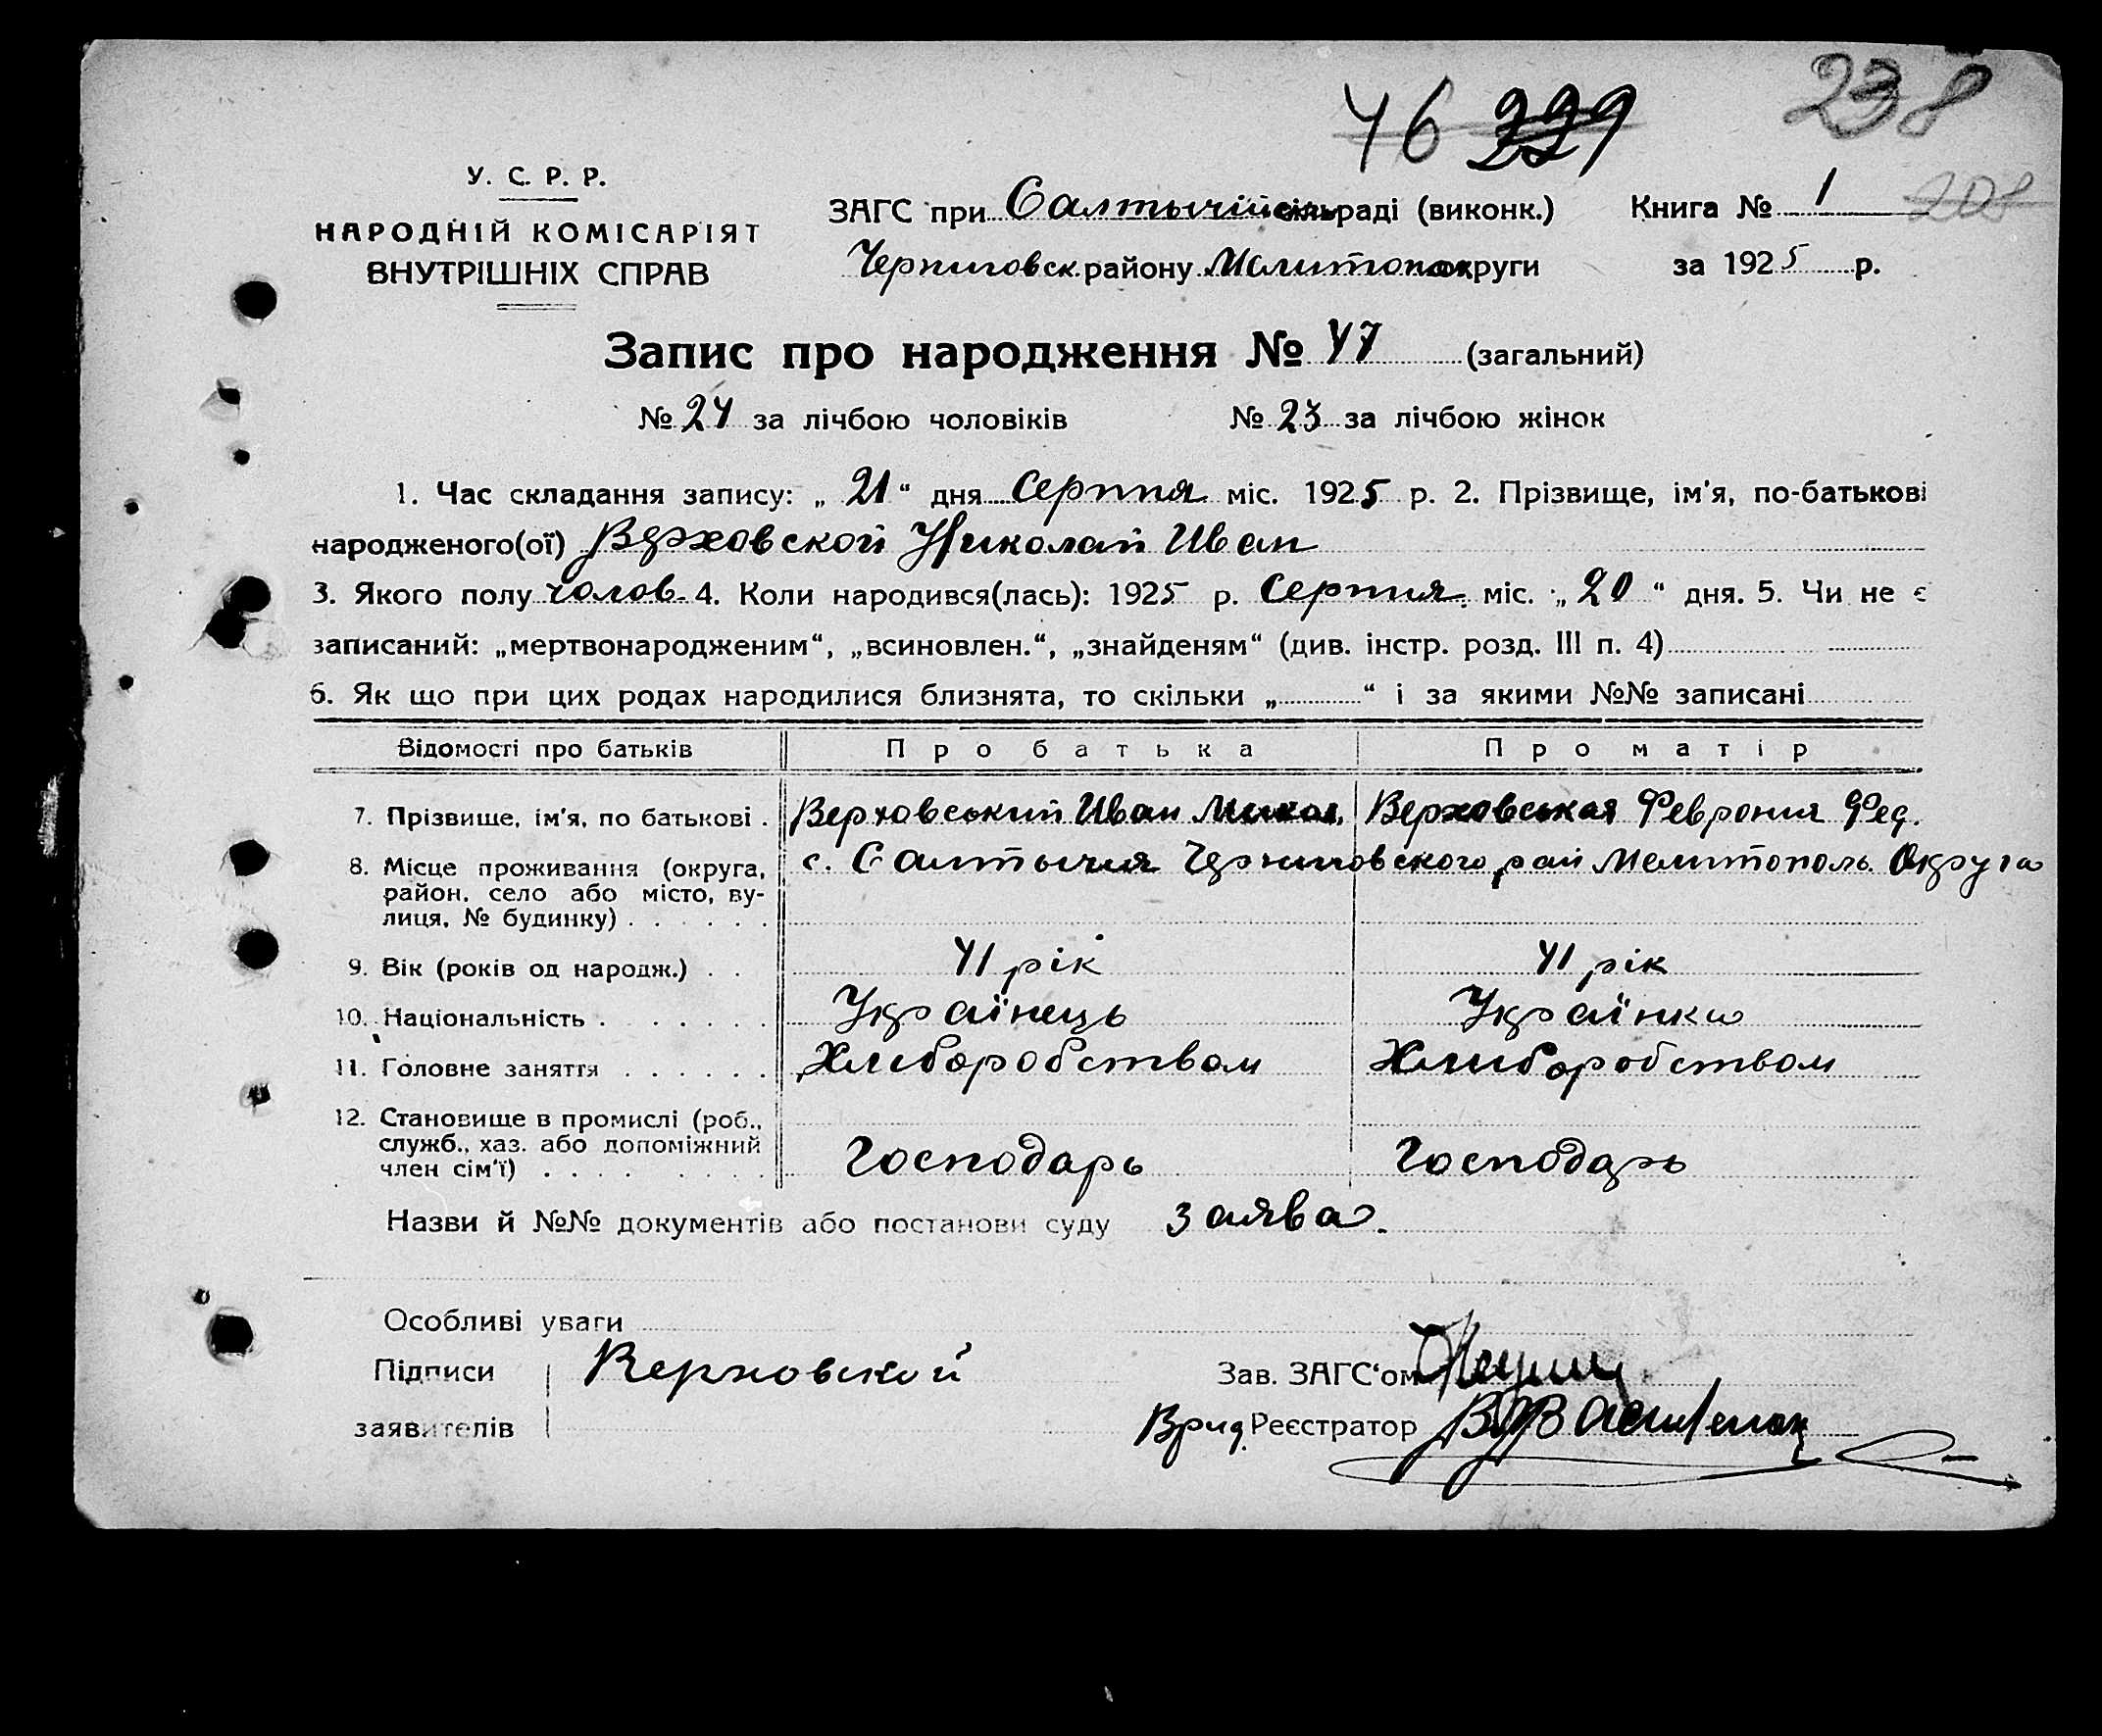 46 229 238
У. С. Р. Р.
НАРОДНІЙ КОМІСАРІЯТ
ВНУТРІШНІХ СПРАВ
ЗАГС при Салтычійск сільраді (виконк.) Книга № 1 208
Черниговск. району Мелитопол округи за 1925 р.
Запис про народження № 47 (загальний)
№ 24 за лічбою чоловіків № 23 за лічбою жінок
1. Час складання запису: „ 21 “ дня Серпня міс. 1925 р. 2. Прізвище, ім'я, по-батькові
народженого(ої) Верховской Николай Иван
3. Якого полу чолов. 4. Коли народився(лась): 1925 р. Серпня міс. „ 20 “ дня. 5. Чи не є
записаний: „мертвонародженим“, „всиновлен.“, „знайденям“ (див. інстр. розд. III п. 4)
6. Як що при цих родах народилися близнята, то скільки „ “ і за якими №№ записані
Відомості про батьків Про батька Про матір
7. Прізвище, ім'я, по батькові . Верховський Иван Микол. Верховськая Феврония Фед.
8. Місце проживання (округа, с. Салтычия Черниговского рай Мелитополь. Округа
район, село або місто, ву-
лиця, № будинку) . . . . . .
9. Вік (років од народж.) . . 41 рік 41 рік
10. Національність . . . . . . . Українець Українка
11. Головне заняття . . . . . . Хлиборобством Хлиборобством
12. Становище в промислі (роб.,
служб., хаз. або допоміжний
член сім'ї) . . . . . . . . Господарь Господарь
Назви й №№ документів або постанови суду заява.
Особливі уваги
Підписи Верховской Зав. ЗАГС'ом
заявителів Врид. Реєстратор